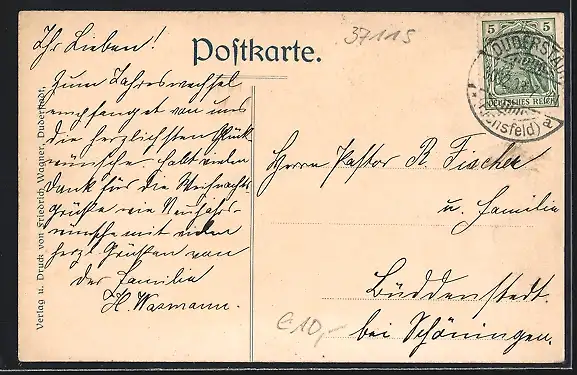 Ihr Lieben!
Postkarte.
37115
Zum Jahreswechsel
empfanget von uns
die herzlichsten Glück-
wünsche. Habt vielen
Dank für die Weihnachts
Grüße wie Neujahrs-
wünsche mit vielen
herzl. Grüßen von
der Familie
H. Wasmann.
Verlag u. Druck von Friedrich Wagner, Duderstadt.
5 5
DEUTSCHES REICH
DUDERSTADT
(Eichsfeld) a
Herrn Pastor R. Fischer
u. Familie
Büddenstedt.
bei Schöningen.
€10,-